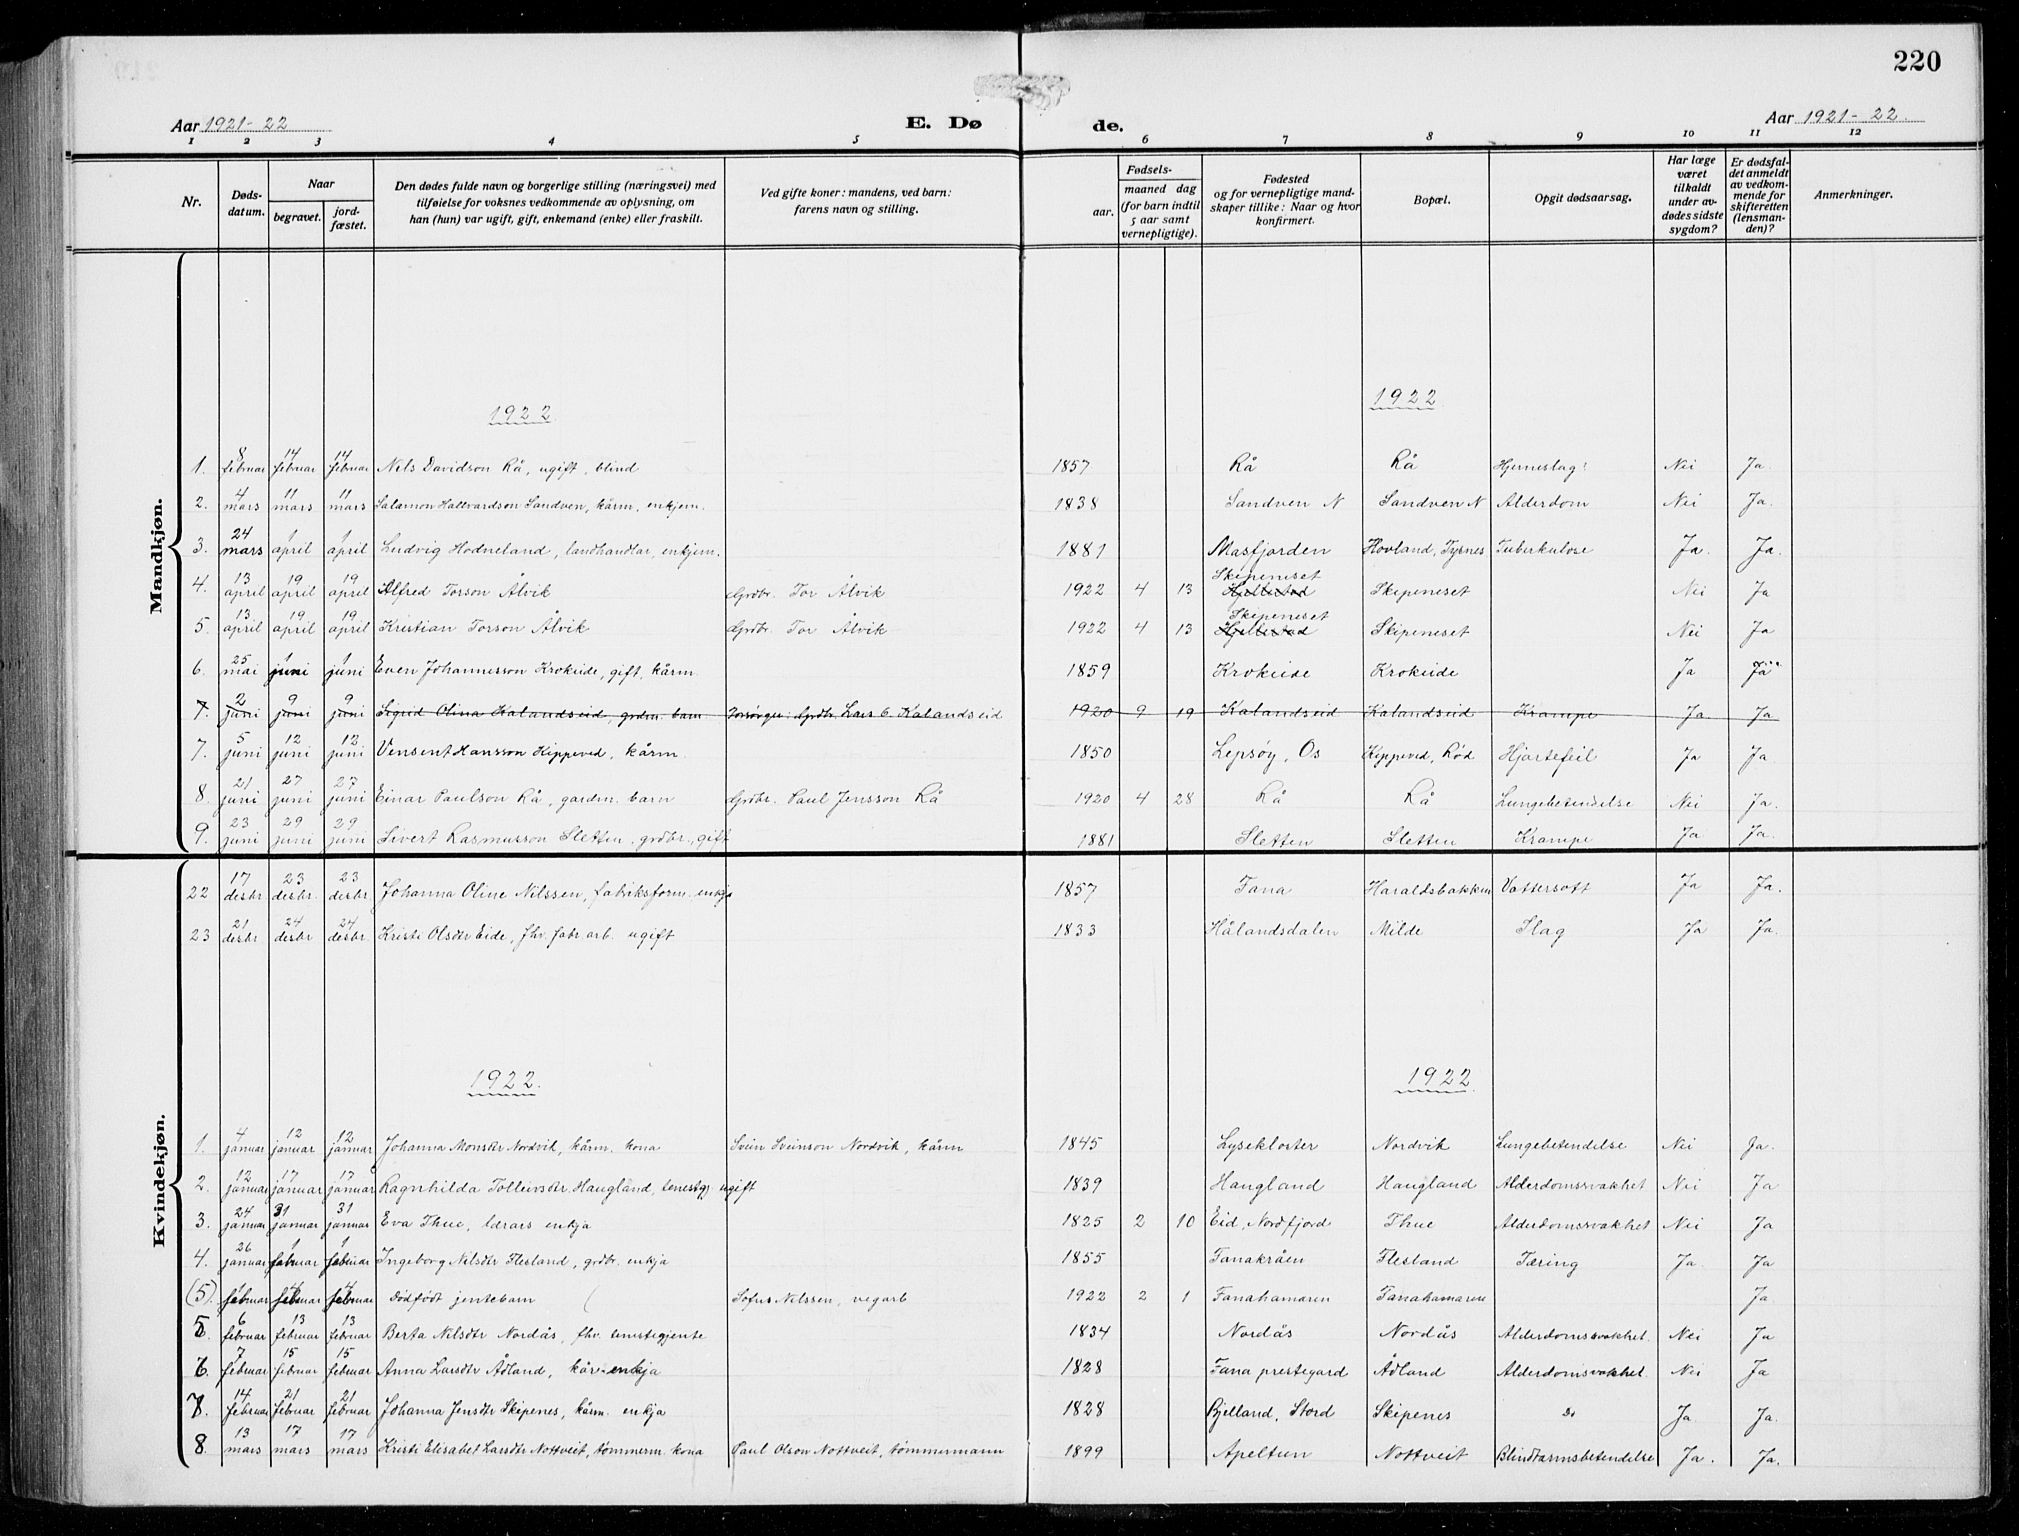 220
Aar 1921-22
E. Dø
de.
Aar 1921-22.
1 2 3 4 5 6 7 8 9 10 11 12
Nr.
Døds-
datum.
Naar
begravet.
jord-
fæstet.
Den dødes fulde navn og borgerlige stilling (næringsvei) med
tilføielse for voksnes vedkommende av oplysning, om
han (hun) var ugift, gift, enkemand (enke) eller fraskilt.
Ved gifte koner: mandens, ved barn:
farens navn og stilling.
Fødsels-
aar.
maaned dag
(for barn indtil
5 aar samt
vernepligtige).
Fødested
og for vernepligtige mand-
skaper tillike: Naar og hvor
konfirmert.
Bopæl.
Opgit dødsaarsag.
Har læge
været
tilkaldt
under av-
dødes sidste
sygdom?
Er dødsfal-
det anmeldt
av vedkom-
mende for
skifteretten
(lensman-
den)?
Anmerkninger.
Mandkjøn.
1922. 1922
1. 8 februar 14 februar 14 februar Nils Davidson Rå, ugift, blind 1857 Rå Rå Hjerneslag? Nei Ja.
2. 4 mars 11 mars 11 mars Salamon Hallvardson Sandven, kårm. enkjem. 1838 Sandven N Sandven N Alderdom Nei Ja.
3. 24 mars 1 april 1 april Ludvig Hodneland, landhandlar, enkjem. 1881 Masfjorden Hovland, Tysnes Tuberkulose Ja. Ja.
4. 13 april 19 april 19 april Alfred Torson Ålvik Grdbr. Tor Ålvik 1922 4 13 Skipeneset Hjellestad Skipeneset Nei Ja
5. 13 april 19 april 19 april Kristian Torson Ålvik Grdbr. Tor Ålvik 1922 4 13 Skipeneset Hjellestad Skipeneset Nei Ja
6. 25 mai 1 juni 1 juni Even Johannesson Krokeide, gift, kårm. 1859 Krokeide Krokeide Ja Ja
7. 2 juni 9 juni 9 juni Sigrid Olina Kalandseid, grdm. barn Forsørger: Grdbr. Lars O. Kalandseid 1920 9 19 Kalandseid Kalandseid Krampe Ja Ja
7. 5 juni 12 juni 12 juni Vensent Hansson Kippeved, kårm. 1850 Lepsøy, Os Kippeved, Rød Hjartefeil Ja Ja.
8. 21 juni 27 juni 27 juni Einar Paulson Rå, gardm. barn Grdbr. Paul Jensson Rå 1920 4 28 Rå Rå Lungebetendelse Nei Ja.
9. 23 juni 29 juni 29 juni Sivert Rasmusson Sletten, grdbr., gift 1881 Sletten Sletten Krampe Ja Ja.
Kvindekjøn.
22 17 desbr 23 desbr. 23 desbr. Johanna Oline Nilssen, fabriksform. enkja 1857 Fana Haraldsbakken Vattersott Ja Ja.
23 21 desbr 24 desbr 24 desbr. Kristi Olsdtr Eide, fhv. fabr. arb. ugift 1833 Hålandsdalen Milde Slag Ja Ja.
1922. 1922
1. 4 januar 12 januar 12 januar Johanna Monsdtr Nordvik, kårm. kona Svein Sveinson Nordvik, kårm 1845 Lysekloster Nordvik Lungebetendelse Nei Ja.
2. 12 januar 17 januar 17 januar Ragnhilda Tolleivsdtr. Haugland, tenestgj. ugift 1839 Haugland Haugland Alderdomssvakhet Nei Ja
3. 24 januar 31 januar 31 januar Eva Thue, lærars enkja 1825 2 10 Eid, Nordfjord Thue Alderdomssvakhet Nei Ja
4. 26 januar 1 februar 1 februar Ingeborg Nilsdtr Flesland, grdbr. enkja 1855 Fanakråen Flesland Tæring Ja. Ja
(5). 1 februar 4 februar 4 februar Dødfødt jentebarn Sofus Nilssen, vegarb 1922 2 1 Fanahamaren Fanahamaren Ja.
5. 6 februar 13 februar 13 februar Berta Nilsdtr Nordås, fhv. tenestegjente 1834 Nordås Nordås Alderdomssvakhet. Nei Ja
6. 7 februar 15 februar 15 februar Anna Larsdtr Ådland, kår-enkja 1828 Fana prestegard Ådland Alderdomssvakhet. Nei Ja
7. 14 februar 21 februar 21 februar Johanna Jensdtr Skipenes, kårm. enkja 1828 Bjelland, Stord Skipenes Do Ja. Ja.
8. 13 mars 17 mars 17 mars Kristi Elisabet Larsdtr Nottveit, tømmerm. kona Paul Olson Nottveit, tømmermann 1899 Apeltun Nottveit Blindtarmsbetendelse Ja. Ja.